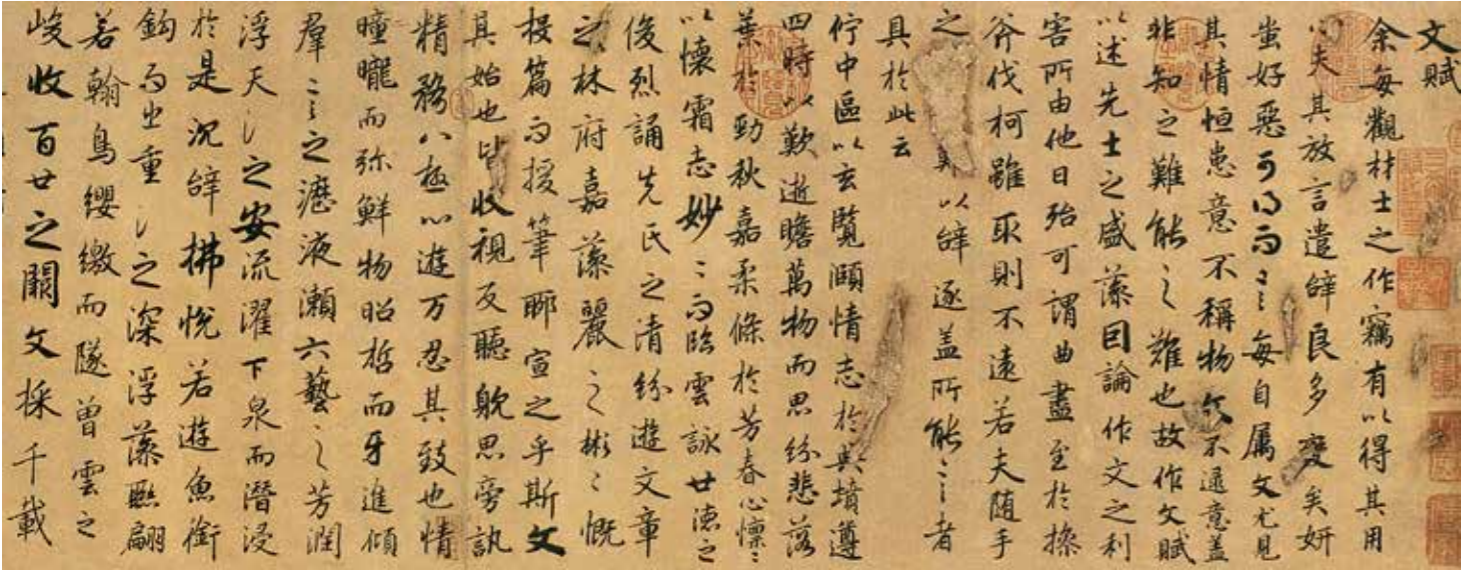 文賦
余每觀材士之作竊有以得其用
心夫其放言遣辭良多變矣妍
蚩好惡可得而言每自属文尤見
其情恒患意不稱物文不逮意盖
非知之難能之難也故作文賦
以述先士之盛藻因論作文之利
害所由他日殆可謂曲盡至於操
斧伐柯雖取則不遠若夫随手
之難以辭逐盖所能言者
具於此云
佇中區以玄覽頤情志於典墳遵
四時以歎逝瞻萬物而思紛悲落
葉於勁秋嘉柔條於芳春心懍〻
以懷霜志妙〻而臨雲詠世徳之
俊烈誦先氏之清紛遊文章
之林府嘉藻麗之彬〻慨
投篇而援筆聊宣之乎斯文
其始也皆收視反聽耽思旁訊
精務八極心遊万忍其致也情
曈曨而弥鮮物昭晢而牙進傾
羣言之瀝液漱六藝之芳潤
浮天淵之安流濯下泉而潜浸
於是沉辞拂悅若遊魚銜
鈎而出重淵之深浮藻聯翩
若翰鳥纓繳而墜曾雲之
峻收百世之闕文採千載